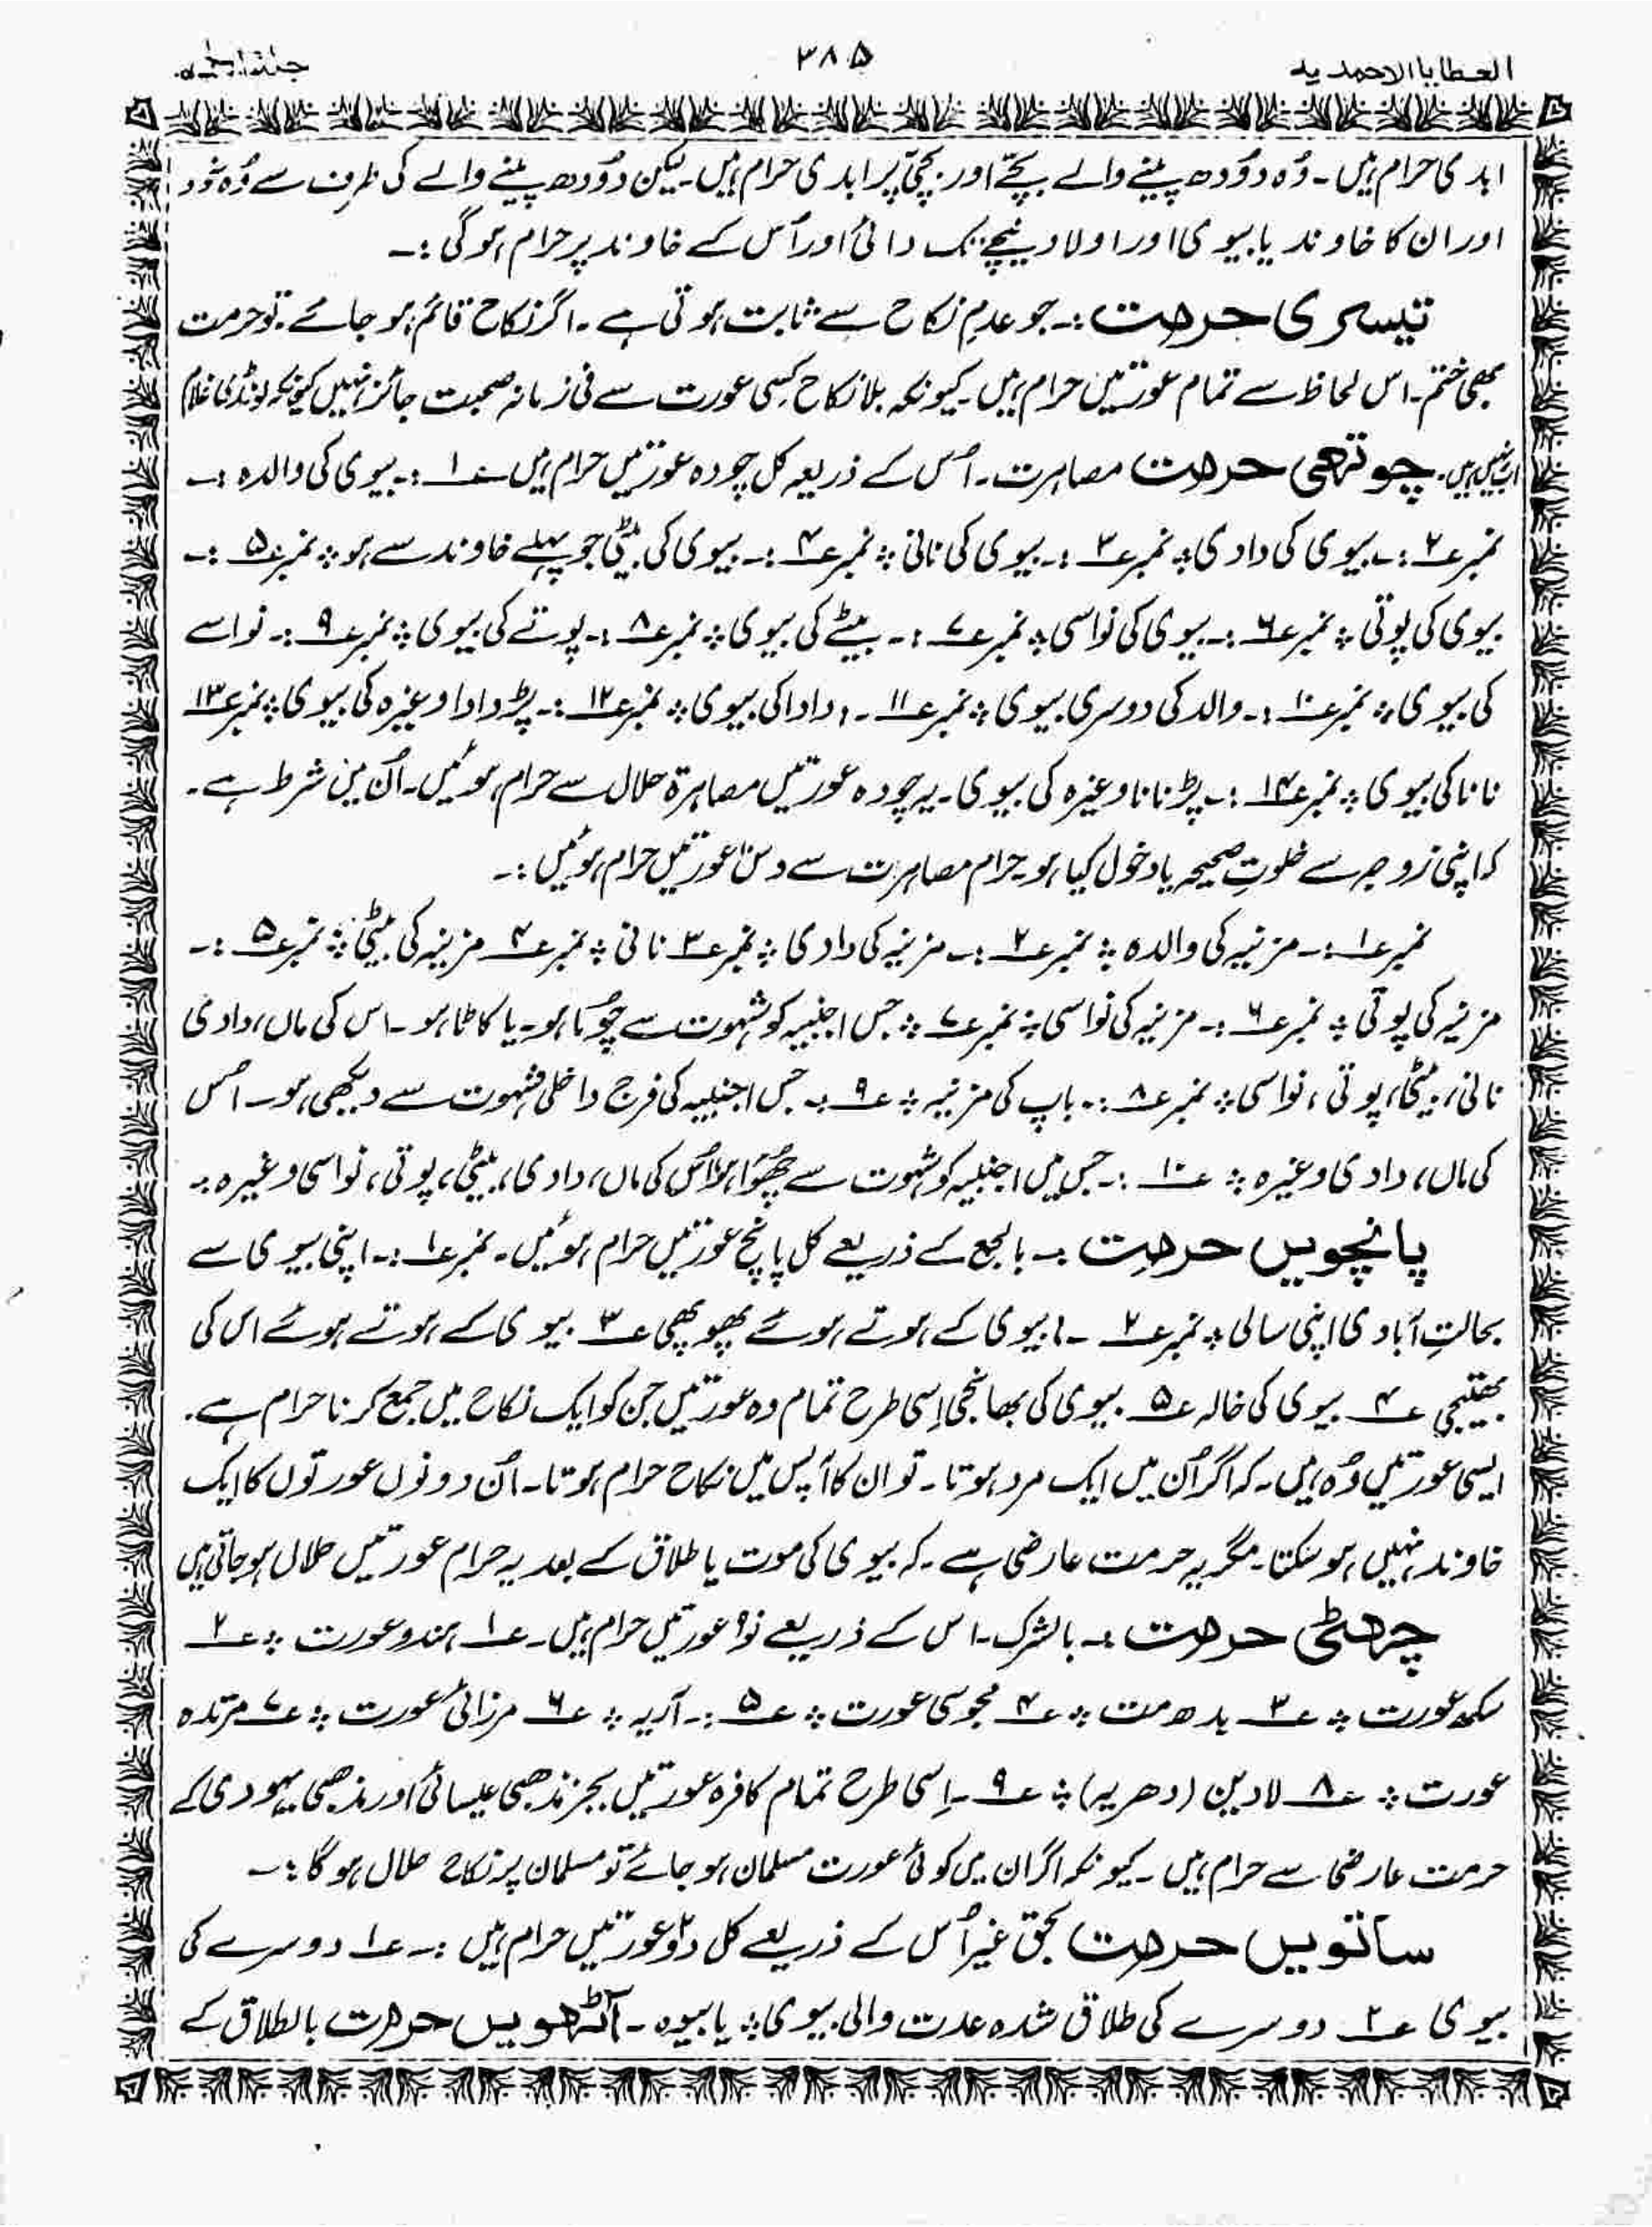 العطايا الاحمديه
۳۸۵
ابدی حرام ہیں۔ وُہ دوُدھ پینے والے بچّے اور بچّی پر ابدی حرام ہیں۔ لیکن دوُدھ پینے والے کی طرف سے وُہ خود
اور ان کا خاوند یا بیوی اور اولاد نیچے تک دائی اور اُس کے خاوند پر حرام ہو گی :۔
تیسری حرمت :۔ جو عدمِ نکاح سے ثابت ہوتی ہے۔ اگر نکاح قائم ہو جائے۔ تو حرمت
بھی ختم۔ اس لحاظ سے تمام عورتیں حرام ہیں۔ کیونکہ بلا نکاح کسی عورت سے فی زمانہ صحبت جائز نہیں کیونکہ لونڈی غلام
اب نہیں ہیں۔ چوتھی حرمت مصاہرت۔ اُس کے ذریعہ کل چودہ عورتیں حرام ہیں ؏۱ :۔ بیوی کی والدہ :۔
نمبر ؏۲ :۔ بیوی کی دادی ؞ نمبر ؏۳ :۔ بیوی کی نانی ؞ نمبر ؏۴ :۔ بیوی کی بیٹی جو پہلے خاوند سے ہو ؞ نمبر ؏۵ :۔
بیوی کی پوتی ؞ نمبر ؏۶ :۔ بیوی کی نواسی ؞ نمبر ؏۷ :۔ بیٹے کی بیوی ؞ نمبر ؏۸ :۔ پوتے کی بیوی ؞ نمبر ؏۹ :۔ نواسے
کی بیوی ؞ نمبر ؏۱۰ :۔ والد کی دوسری بیوی ؞ نمبر ؏۱۱ :۔ دادا کی بیوی ؞ نمبر ؏۱۲ :۔ پڑدادا وغیرہ کی بیوی ؞ نمبر ؏۱۳
نانا کی بیوی ؞ نمبر ؏۱۴ :۔ پڑنانا وغیرہ کی بیوی۔ یہ چودہ عورتیں مصاہرۃ حلال سے حرام ہوئیں۔ اُن میں شرط ہے۔
کہ اپنی زوجہ سے خلوتِ صحیحہ یا دخول کیا ہو۔ حرام مصاہرت سے دس۱۰ عورتیں حرام ہوئیں :۔
نمبر ؏۱ :۔ مزنیہ کی والدہ ؞ نمبر ؏۲ :۔ مزنیہ کی دادی ؞ نمبر ؏۳ نانی ؞ نمبر ؏۴ مزنیہ کی بیٹی ؞ نمبر ؏۵ :۔
مزنیہ کی پوتی ؞ نمبر ؏۶ :۔ مزنیہ کی نواسی ؞ نمبر ؏۷ ؞ جس اجنبیہ کو شہوت سے چُوما ہو۔ یا کاٹا ہو۔ اس کی ماں، دادی
نانی، بیٹی، پوتی، نواسی ؞ نمبر ؏۸ :۔ باپ کی مزنیہ ؞ ؏۹ :۔ جس اجنبیہ کی فرج داخلی شہوت سے دیکھی ہو۔ اُس
کی ماں، دادی وغیرہ ؞ ؏۱۰ :۔ جس میں اجنبیہ کو شہوت سے چُھوَا ہو اُس کی ماں، دادی، بیٹی، پوتی، نواسی وغیرہ :۔
پانچویں حرمت :۔ بالجمع کے ذریعے کل پانچ عورتیں حرام ہوئیں۔ نمبر ؏۱ :۔ اپنی بیوی سے
بحالتِ آبادی اپنی سالی ؞ نمبر ؏۲ :۔ بیوی کے ہوتے ہوئے پھوپھی ؏۳ بیوی کے ہوتے ہوئے اس کی
بھتیجی ؏۴ بیوی کی خالہ ؏۵ بیوی کی بھانجی اِسی طرح تمام وہ عورتیں جن کو ایک نکاح میں جمع کرنا حرام ہے۔
ایسی عورتیں وُہ ہیں۔ کہ اگر اُن میں ایک مرد ہوتا۔ تو ان کا آپس میں نکاح حرام ہوتا۔ اُن دونوں عورتوں کا ایک
خاوند نہیں ہو سکتا۔ مگر یہ حرمت عارضی ہے۔ کہ بیوی کی موت یا طلاق کے بعد یہ حرام عورتیں حلال ہو جاتی ہیں
چھٹی حرمت :۔ بالشرک۔ اس کے ذریعے نو۹ عورتیں حرام ہیں۔ ؏۱ ہندو عورت ؞ ؏۲
سکھ عورت ؞ ؏۳ بدھ مت ؞ ؏۴ مجوسی عورت ؞ ؏۵ :۔ آریہ ؞ ؏۶ مرزائی عورت ؞ ؏۷ مرتدہ
عورت ؞ ؏۸ لادین (دھریہ) ؞ ؏۹ ۔ اِسی طرح تمام کافرہ عورتیں بجز مذھبی عیسائی اور مذھبی یہودی کے
حرمت عارضی سے حرام ہیں۔ کیونکہ اگر ان میں کوئی عورت مسلمان ہو جائے تو مسلمان پر نکاح حلال ہو گا :۔
ساتویں حرمت بحق غیر اُس کے ذریعے کل دو۲ عورتیں حرام ہیں :۔ ؏۱ دوسرے کی
بیوی ؏۲ دوسرے کی طلاق شدہ عدت والی بیوی ؞ یا بیوہ۔ آٹھویں حرمت بالطلاق کے